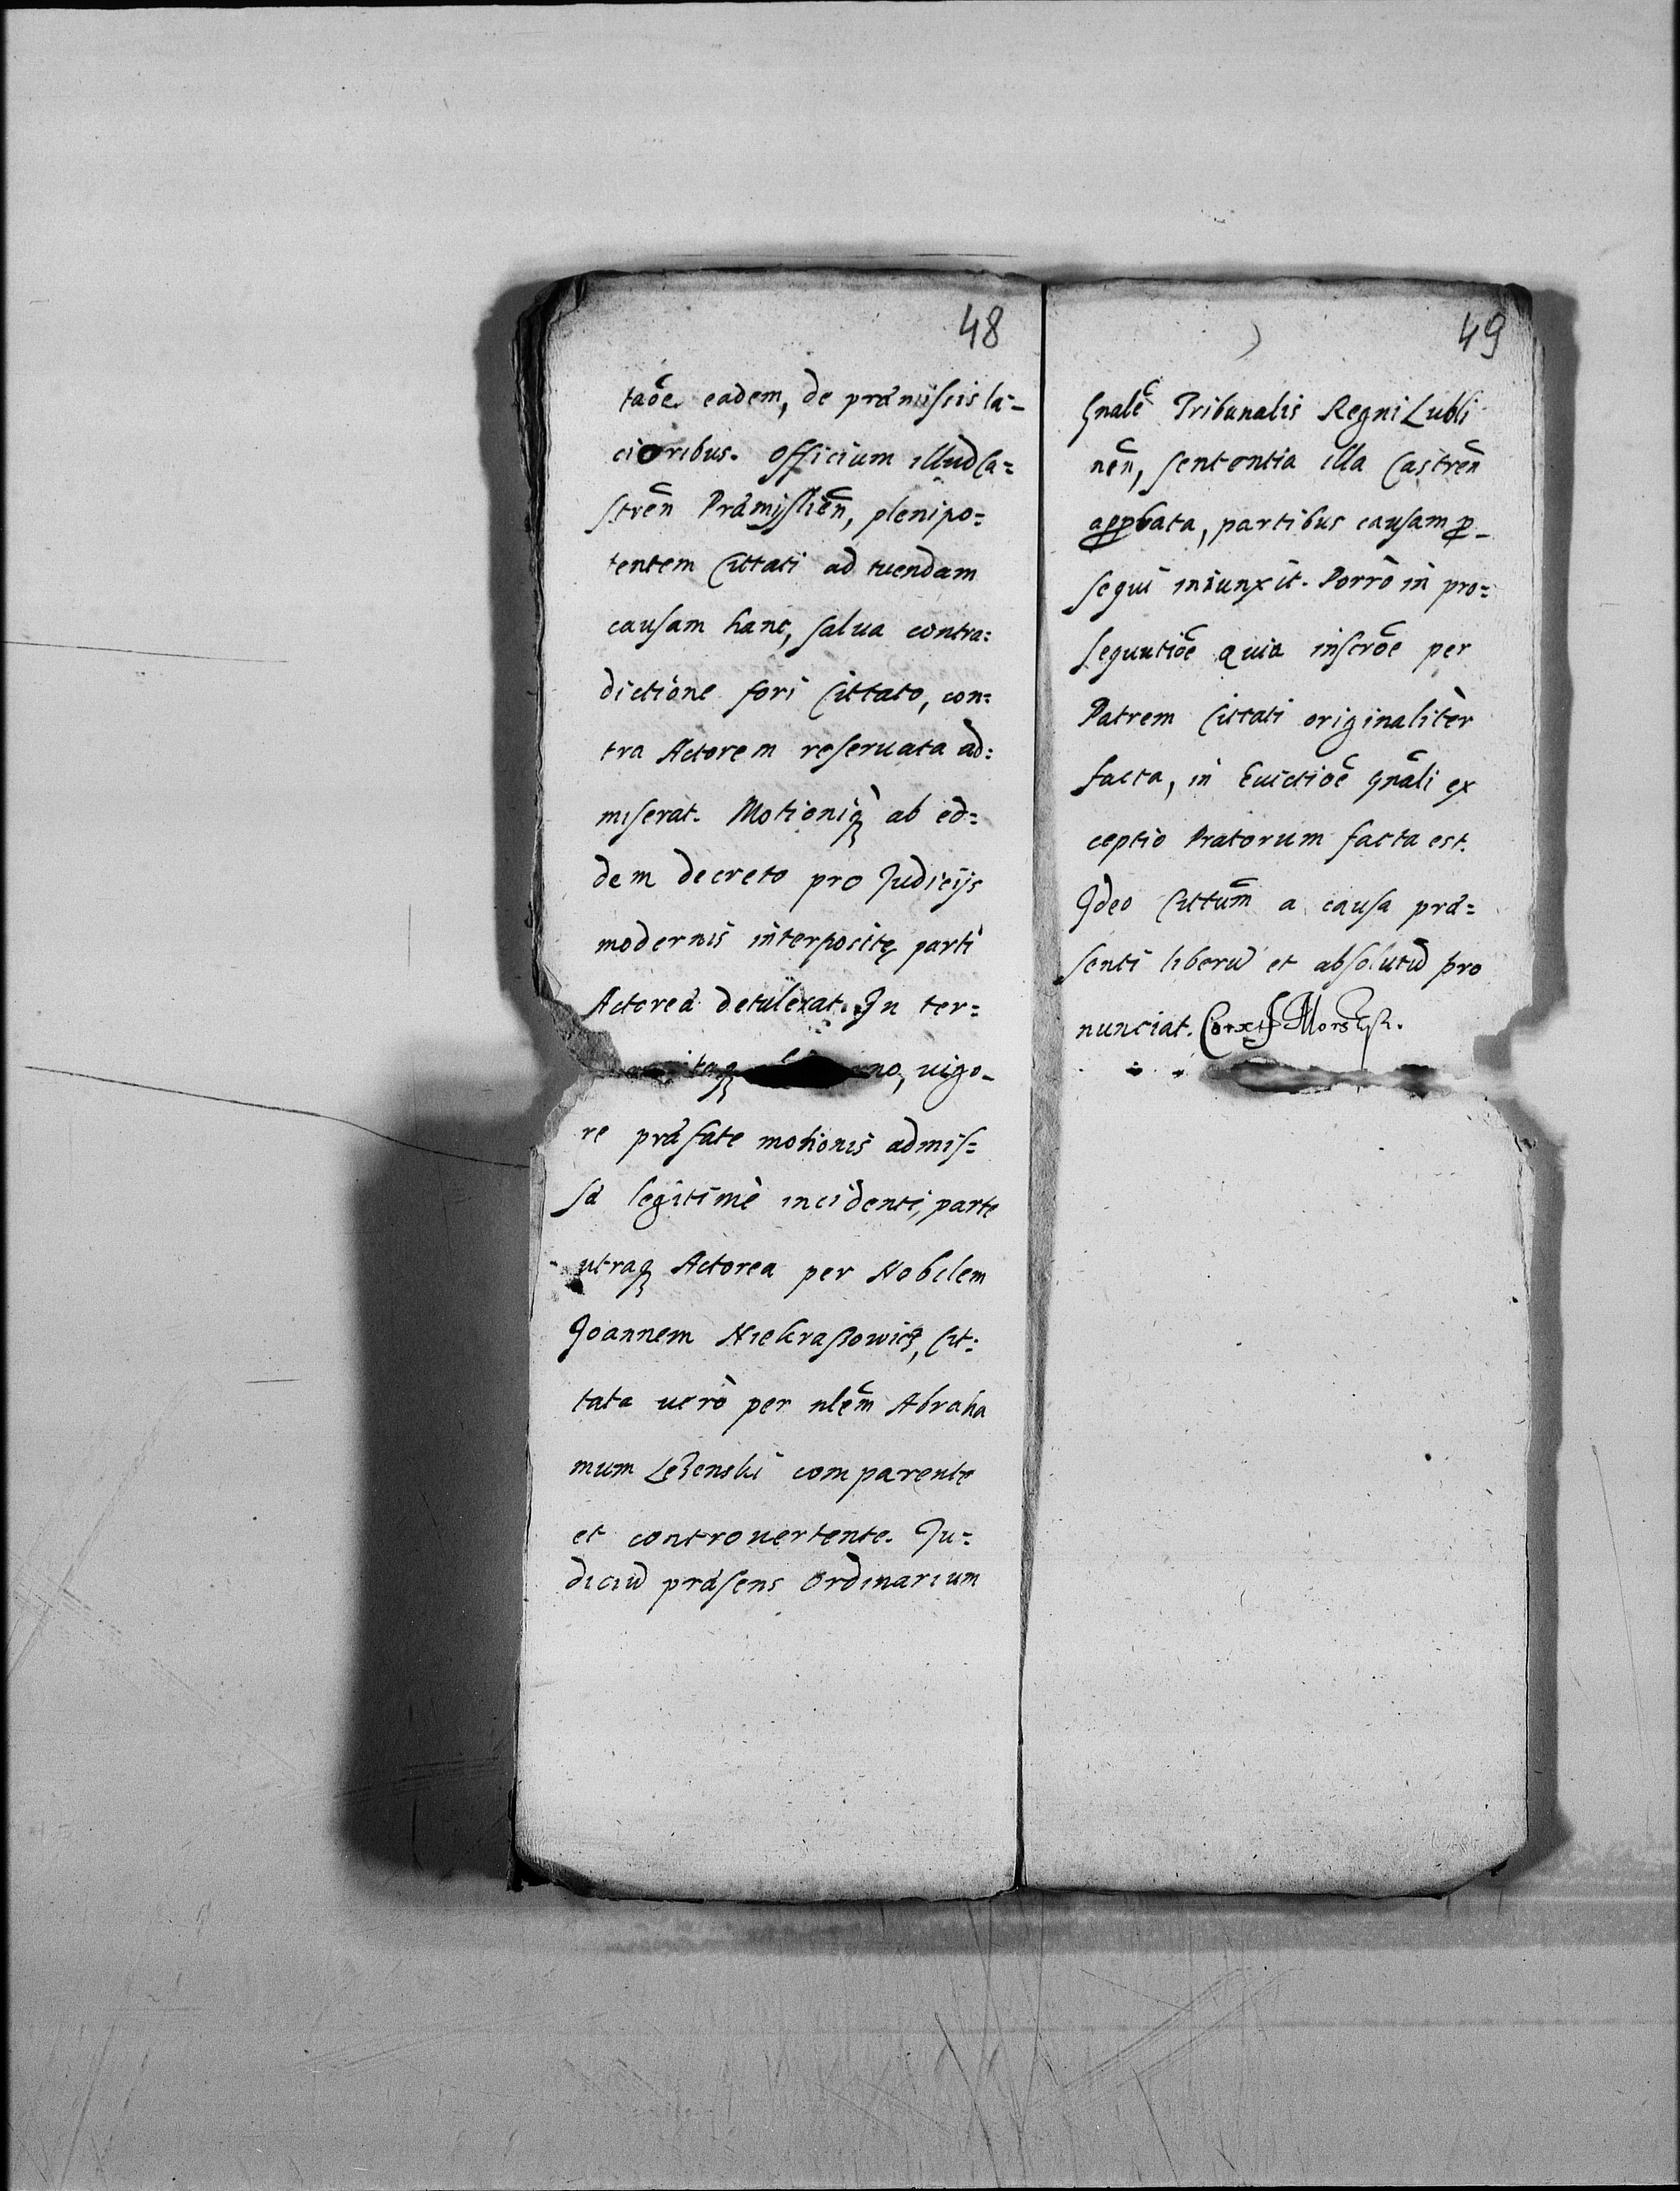 48
taõe eadem, de præmissis la-
cioribus. Officium illud Ca=
streñ Præmijslieñ, plenipo=
tentem Cittati ad tuendam
causam hanc, salua contra=
dictione fori Cittato, con=
tra Actorem reseruata ad=
miserat. Motioniq̀ ab eo=
dem decreto pro Judicijs
modernis interpositę parti
Actoreæ detulerat. In ter=
itaq no, uigo-
re præfate motionis admis=
sæ legitimè incidenti, parte
utraq Actorea per Nobilem
Joannem Niekraßowicz, Cit=
tata uerò per nlem̃ Abraha
mum Lezenski comparente
et controuertente. Ju=
diciũ præsens Ordinarium
49
Gnale Tribunalis Regni Lubli
neñ, sententia illa Castreñ
approbata, partibus causam p-
sequi iniunxit. Porrò in pro=
sequutiõe quia inscrõe per
Patrem Cittati originalitèr
facta, in Euictiõe gnãli ex
ceptio Pratorum facta est.
Ideo Cittum̃ a causa præ=
senti liberũ et absolutũ pro
nunciat.